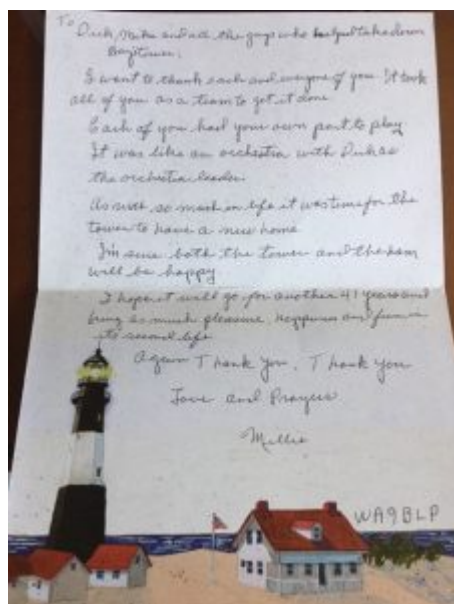 To
Dick, Mike and all the guys who helped take down
tower.
I want to thank each and everyone of you. It took
all of you as a team to get it done
Each of you had your own part to play
It was like an orchestra with Dick as
the orchestra leader.
As with so much in life it was time for the
tower to have a new home
I'm sure both the tower and the ham
will be happy
I hope it will go for another 41 years and
bring as much pleasure, happiness and fun in
its second life
Again Thank you, Thank you
Love and Prayers
Millie
WA9BLP